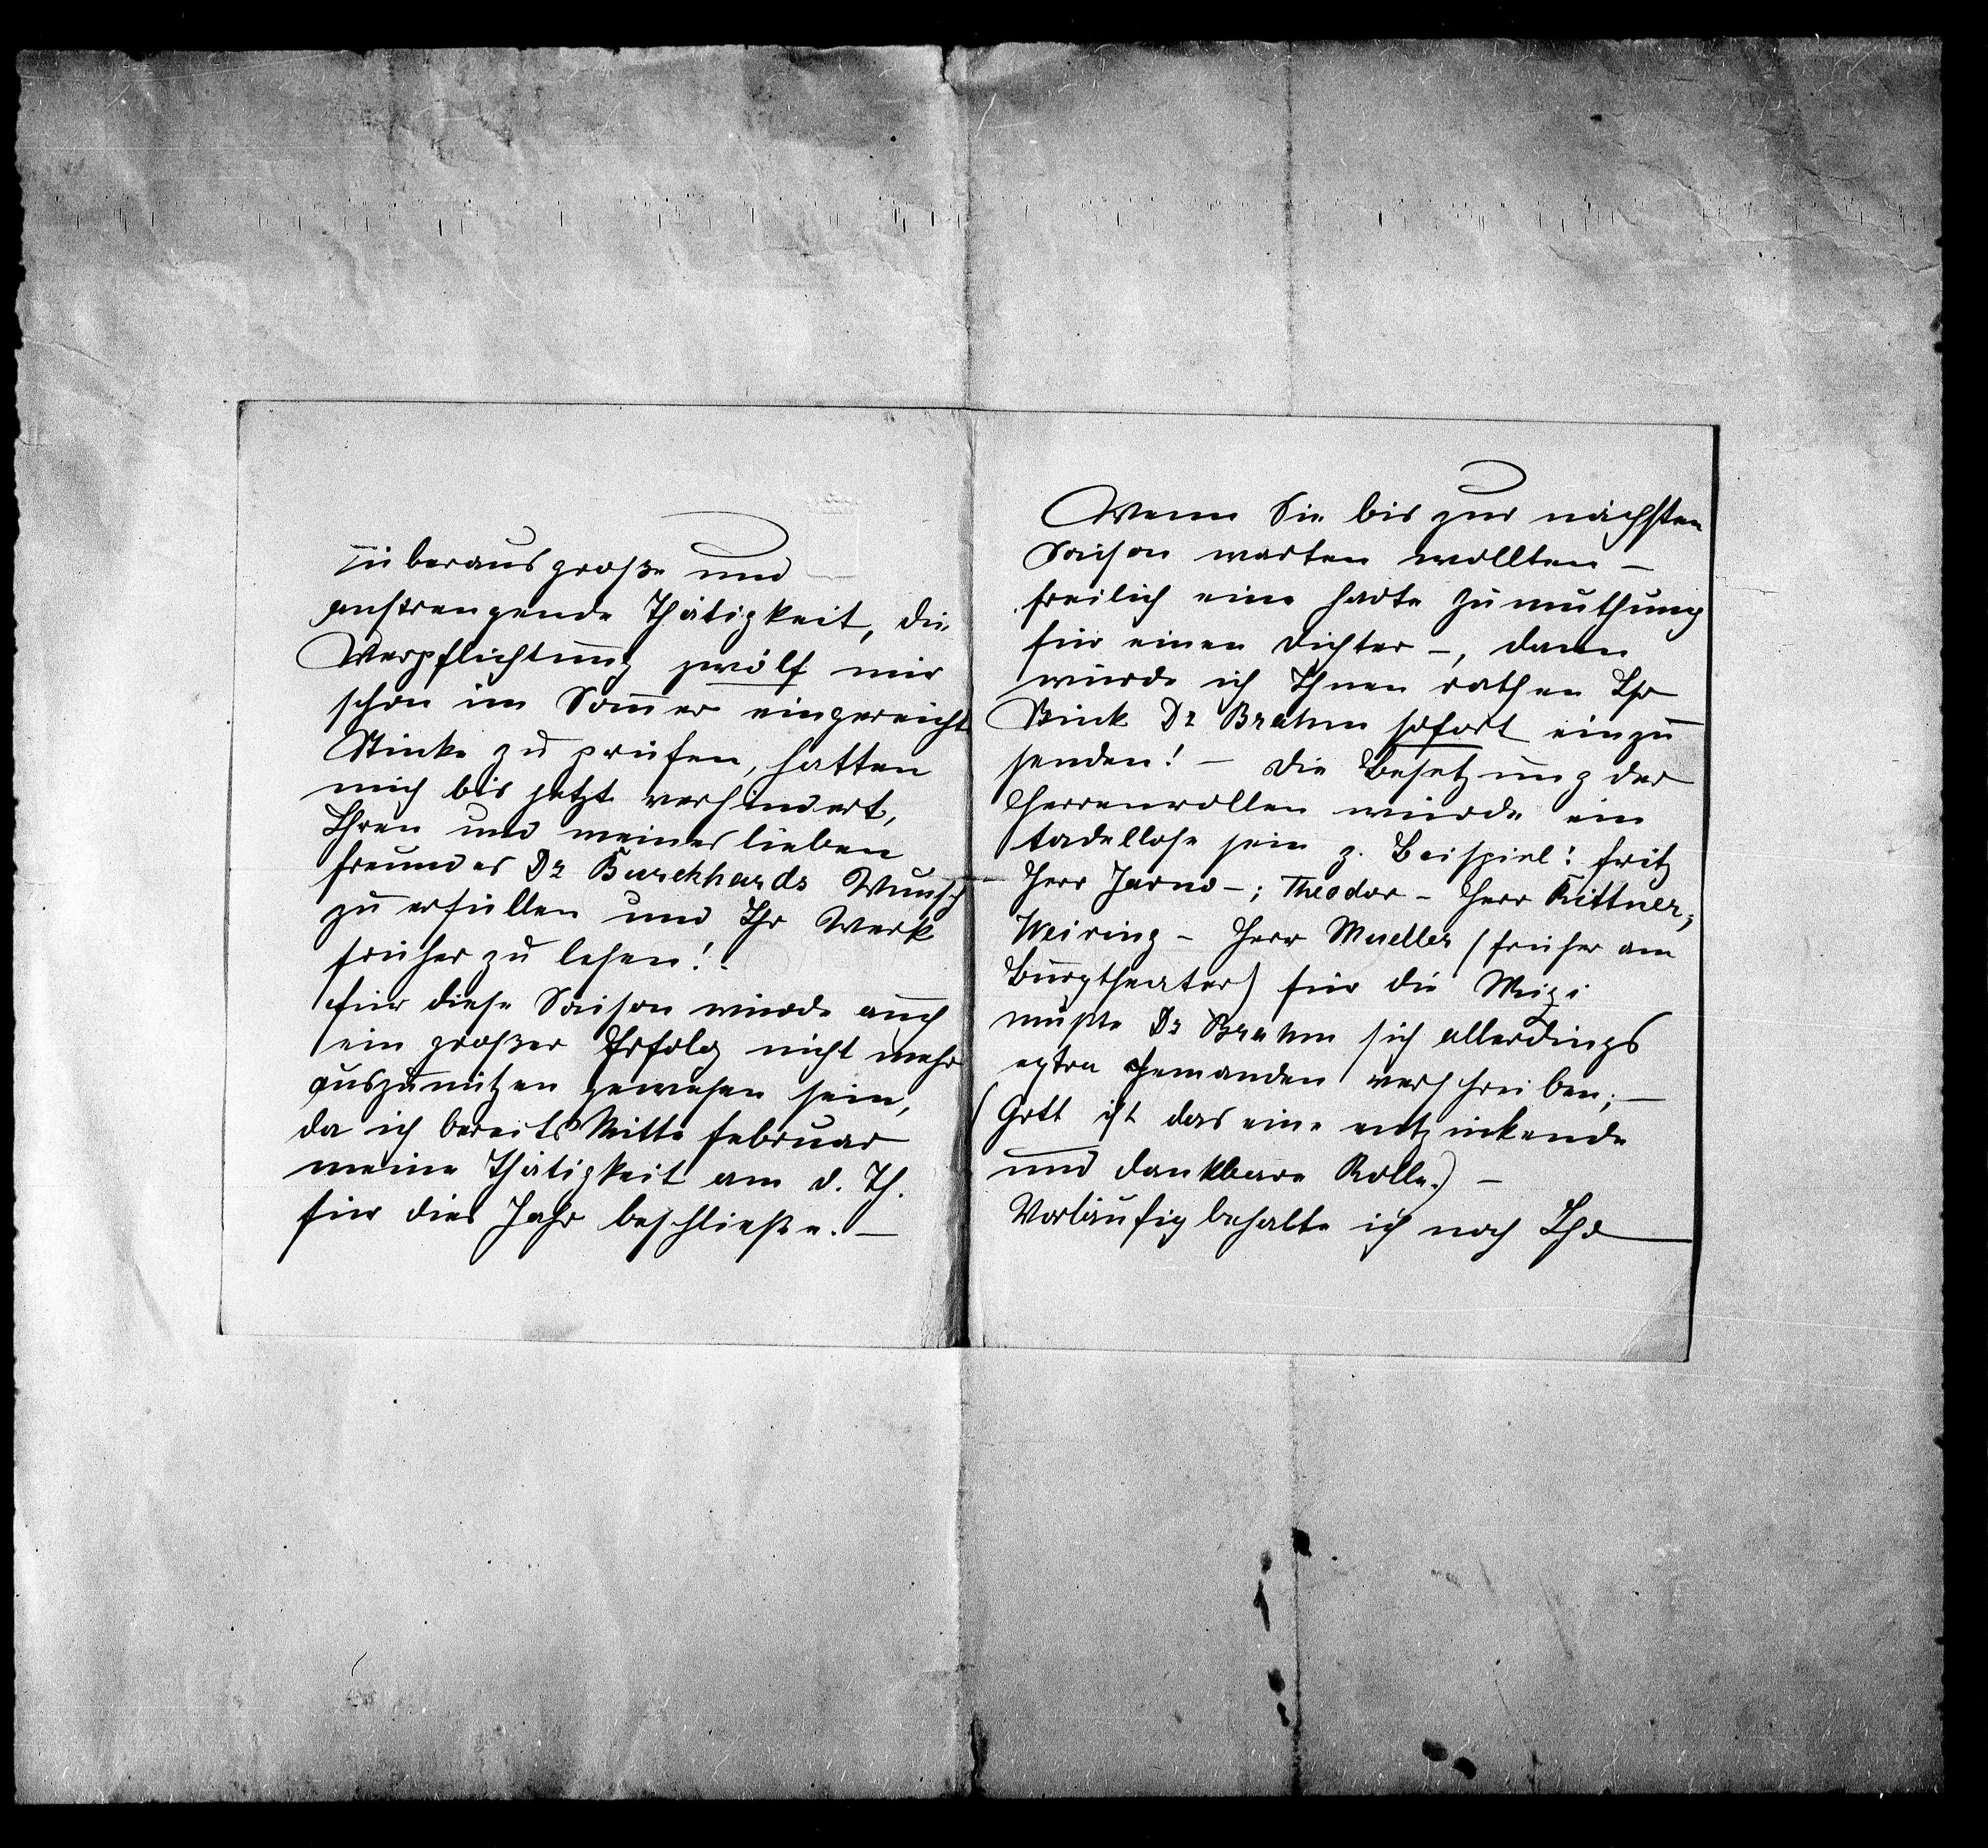 überaus große und
anstrengende Thätigkeit, die
Verpflichtung zwölf mir
schon im Sommer eingereicht
Stücke zu prüfen, hatten
mich bis jetzt verhindert,
Ihren und meines lieben
Freundes Dr Burckhards Wunsch
zu erfüllen und Ihr Werk
früher zu lesen!
Für diese Saison würde auch
ein großer Erfolg nicht mehr
auszunützen gewesen sein,
da ich bereits Mitte Februar
meine Thätigkeit am d. Th.
für dies Jahr beschließe. –
Wenn Sie bis zur nächsten
Saison warten wollten –
freilich eine harte Zumuthung
für einen Dichter –, dann
würde ich Ihnen rathen Ihr
Stück Dr Brahm sofort einzu
senden! – Die Besetzung der
Herrenrollen würde ein
tadellose sein z. Beispiel: Fritz
Herr Jarno –; Theodor – Herr Rittner,
Weiring – Herr Mueller (früher am
Burgtheater) für die Mizi
müßte Dr Brahm sich allerdings
extra Jemanden verschreiben; –
(Gott ist das eine entzückende
und dankbare Rolle.) –
Vorläufig behalte ich noch Ihr